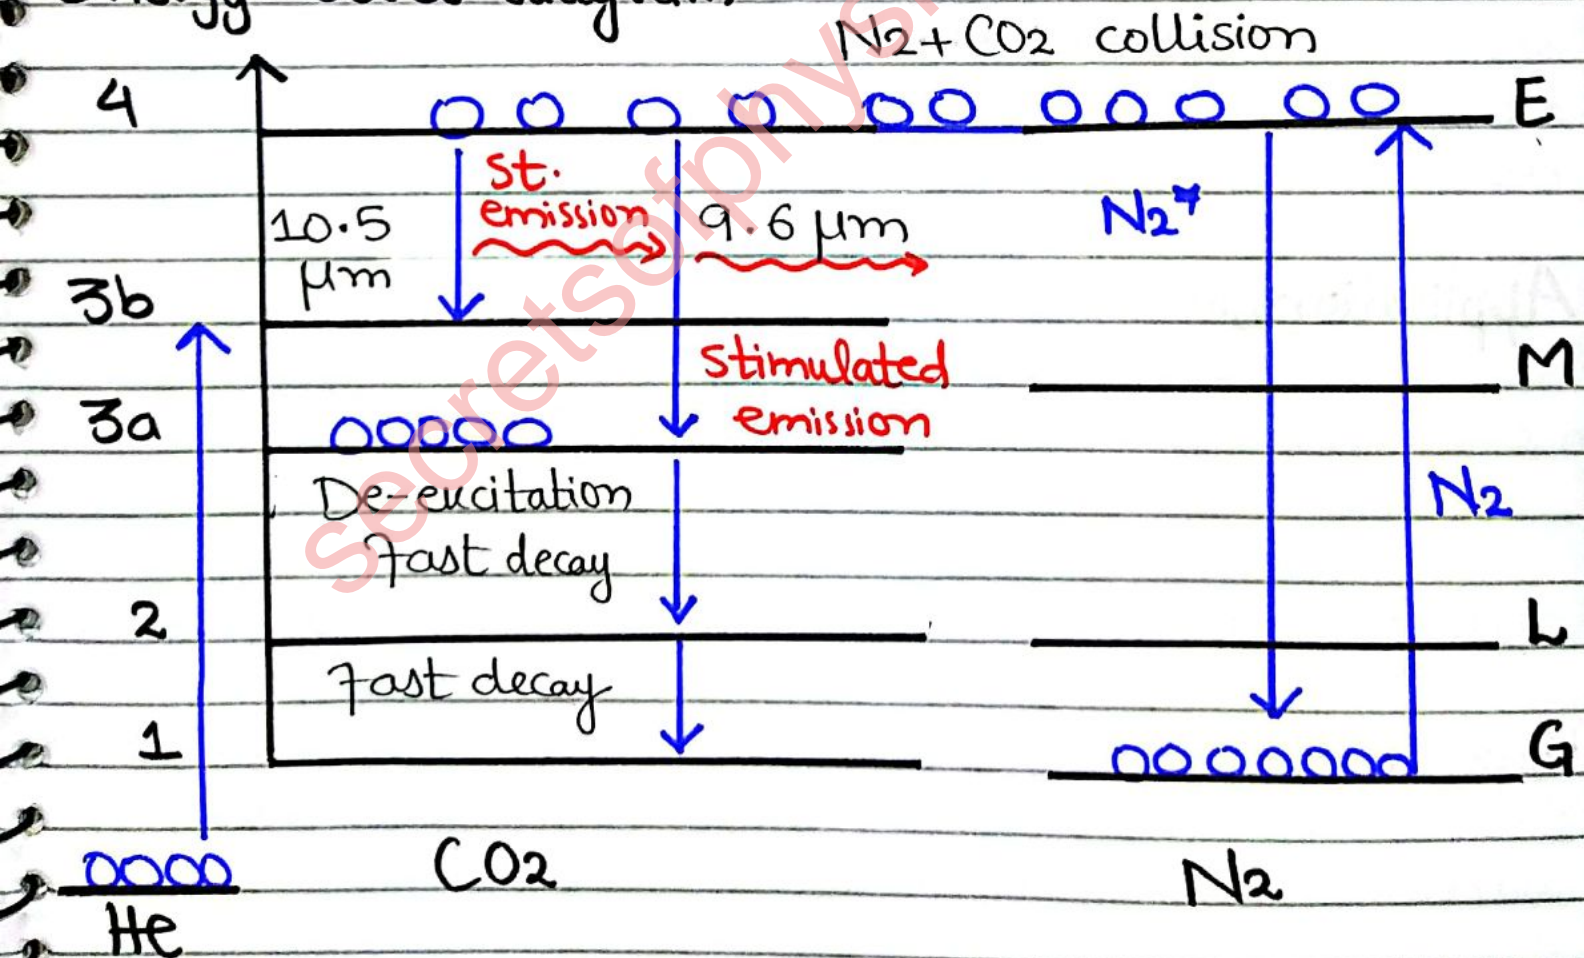 N2+CO2 collision
4
E
st.
emission
10.5
μm
9.6 μm
N2*
3b
stimulated
emission
M
3a
De-excitation
Fast decay
N2
2
L
Fast decay
1
G
CO2
N2
He
secretsofphys